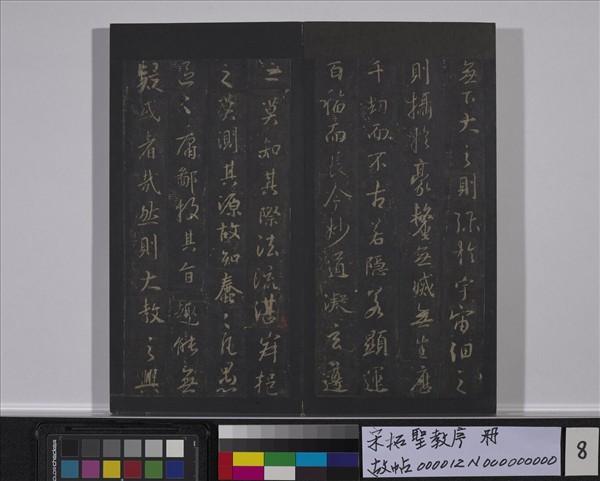 無下大之則彌於宇宙細之
則攝於豪釐無滅無生歷
千劫而不古若隱若顯運
百福而長今妙道凝玄遵
之莫知其際法流湛寂挹
之莫測其源故知蠢〻凡愚
區〻庸鄙投其旨趣能無
疑或者哉然則大教之興
宋拓聖教序 冊
故帖000012N000000000
8